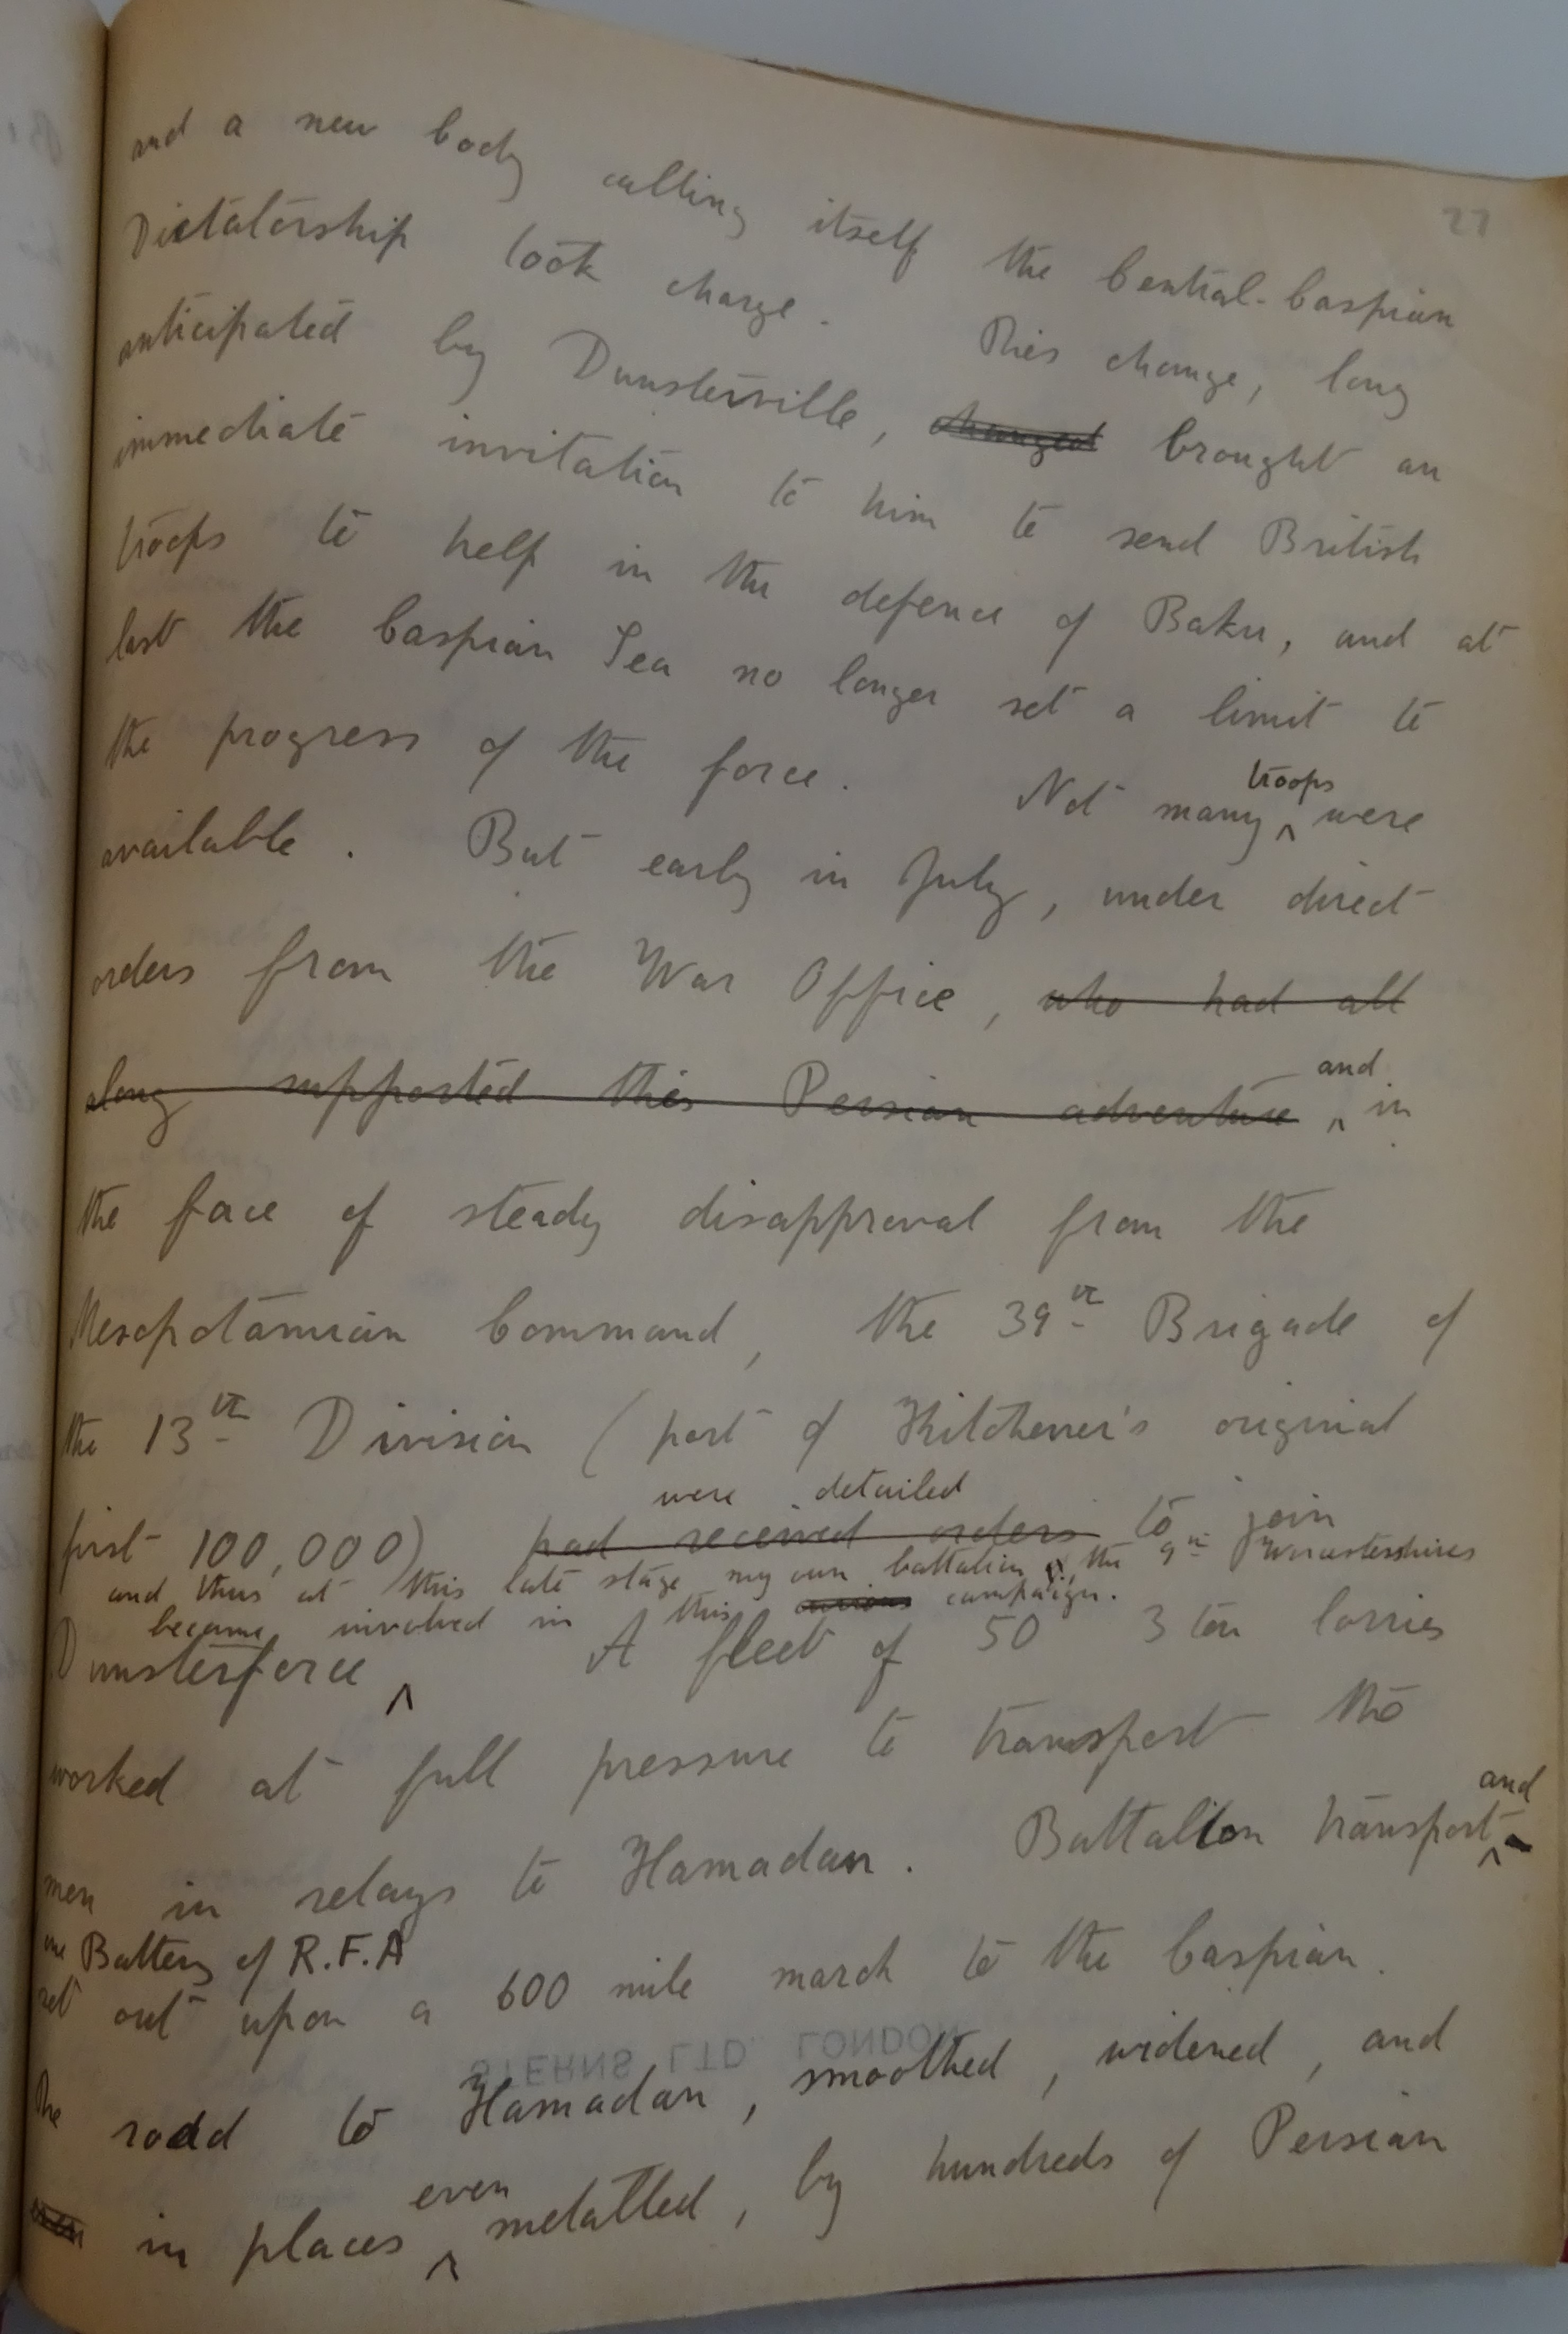 27
and a new body calling itself the Central-Caspian
Dictatorship took charge. This change, long
anticipated by Dunsterville, changed brought an
immediate invitation to him to send British
troops to help in the defence of Baku, and at
last the Caspian Sea no longer set a limit to
the progress of the force. Not many ^ troops were
available. But early in July, under direct
orders from the War Office, who had all
along supported this Persian adventure ^ and in
the face of steady disapproval from the
Mesopotamian Command, the 39th Brigade of
the 13th Division (part of Kitchener's original
were detailed
first 100,000) had received orders to join
and thus at this late stage my own battalion, the 9th Worcestershires
became involved in this curious campaign.
Dunsterforce ^ A fleet of 50 3 ton lorries
worked at full pressure to transport the
men in relays to Hamadan. Battalion transport ^ and
one Battery of R.F.A
set out upon a 600 mile march to the Caspian.
STERNS LTD. LONDON
The road to Hamadan, smoothed, widened, and
even in places ^ even metalled, by hundreds of Persian